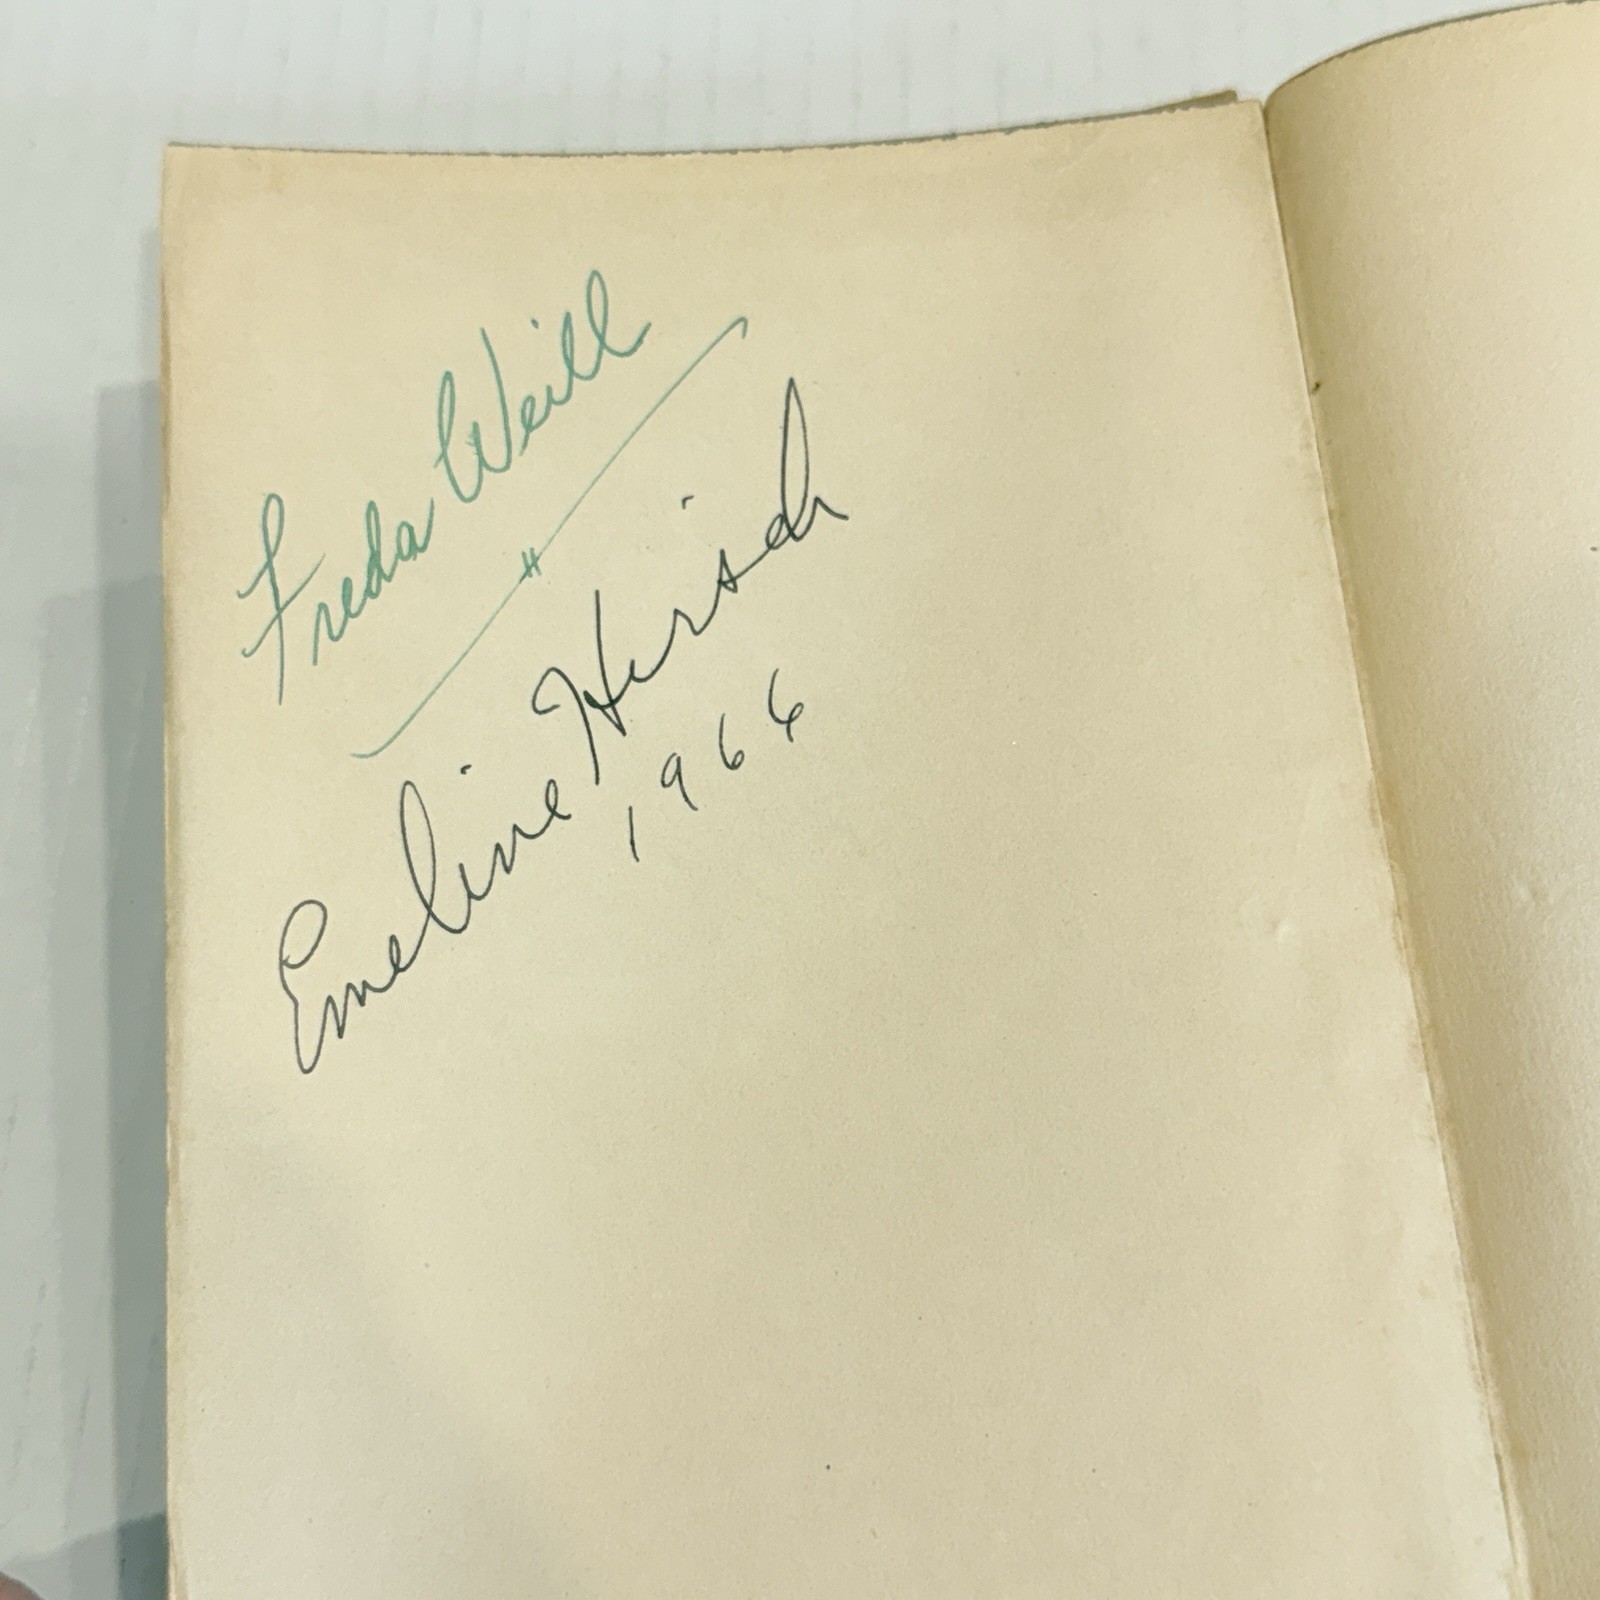 Freda Weill
Emeline Hirsch
1966